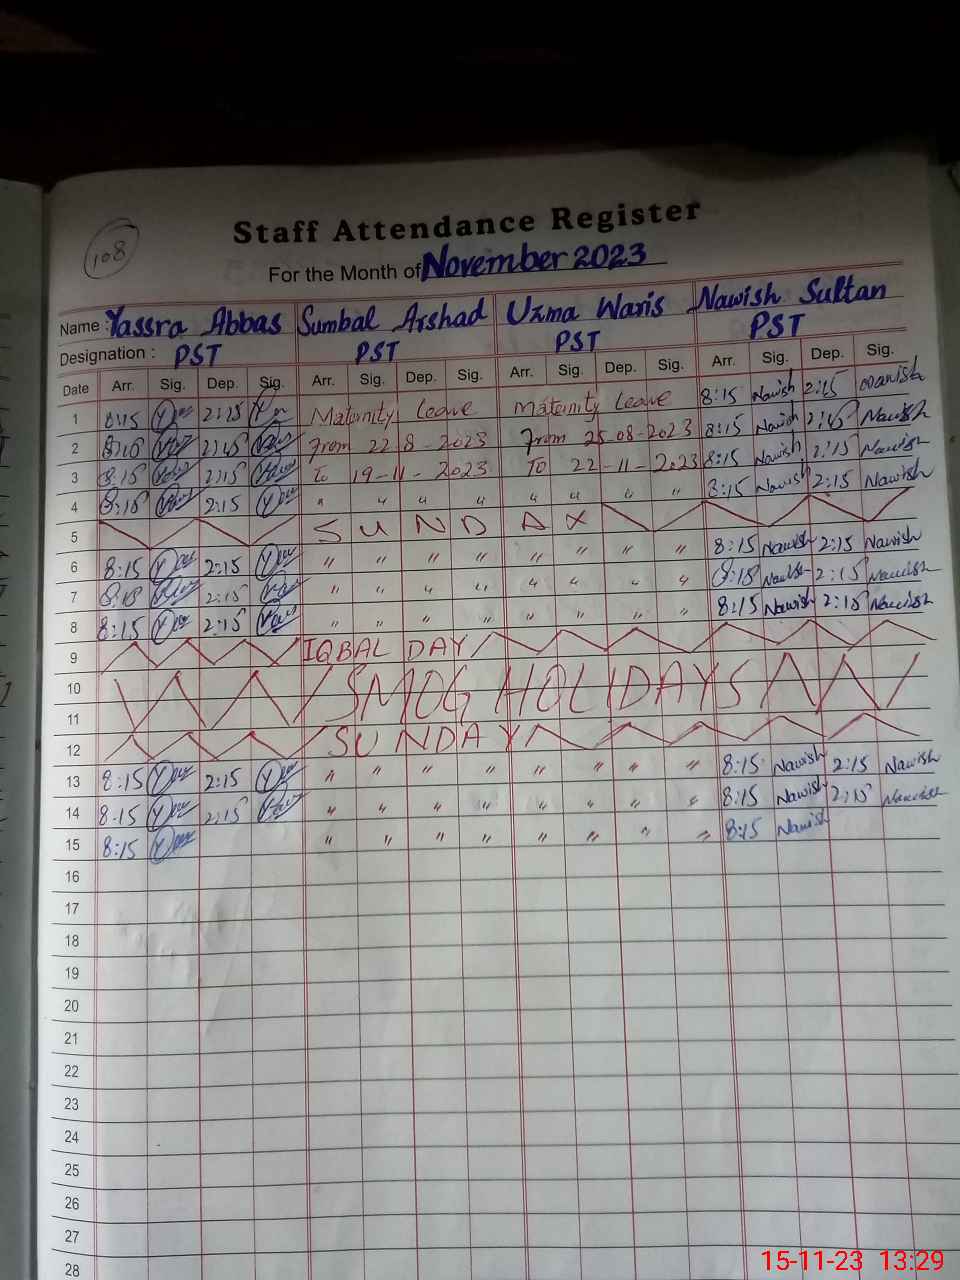 108
Staff Attendance Register
For the Month of November 2023
Name : Yassra Abbas Sumbal Arshad Uzma Waris Nawish Sultan
Designation : PST PST PST PST
Date Arr. Sig. Dep. Sig. Arr. Sig. Dep. Sig. Arr. Sig. Dep. Sig. Arr. Sig. Dep. Sig.
1 8:15 2:15 Maternity Leave Maternity Leave 8:15 Nawish 2:15 Nawish
2 8:15 2:45 From 22-8-2023 From 25-08-2023 8:15 Nawish 2:45 Nawish
3 8:15 2:15 To 19-11-2023 To 22-11-2023 8:15 Nawish 2:15 Nawish
4 8:15 2:15 " " " " " " " " 8:15 Nawish 2:15 Nawish
5 SUNDAY
6 8:15 2:15 " " " " " " " " 8:15 Nawish 2:15 Nawish
7 8:15 2:15 " " " " " " " " 8:15 Nawish 2:15 Nawish
8 8:15 2:15 " " " " " " " " 8:15 Nawish 2:15 Nawish
9 IQBAL DAY
10 SMOG HOLIDAYS
11
12 SUNDAY
13 8:15 2:15 " " " " " " " " 8:15 Nawish 2:15 Nawish
14 8:15 2:15 " " " " " " " " 8:15 Nawish 2:15 Nawish
15 8:15 " " " " " " " " 8:15 Nawish
16
17
18
19
20
21
22
23
24
25
26
27
28
15-11-23 13:29